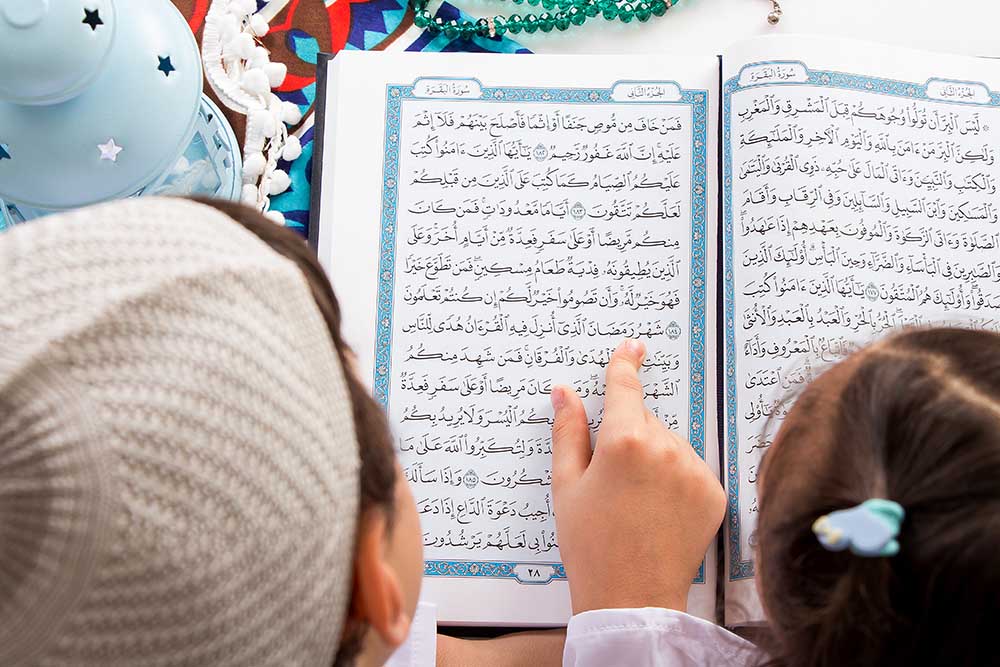 الجزء الثاني
سورة البقرة
۞ لَّيْسَ ٱلْبِرَّ أَن تُوَلُّوا۟ وُجُوهَكُمْ قِبَلَ ٱلْمَشْرِقِ وَٱلْمَغْرِبِ
وَلَٰكِنَّ ٱلْبِرَّ مَنْ ءَامَنَ بِٱللَّهِ وَٱلْيَوْمِ ٱلْءَاخِرِ وَٱلْمَلَٰٓئِكَةِ
وَٱلْكِتَٰبِ وَٱلنَّبِيِّۦنَ وَءَاتَى ٱلْمَالَ عَلَىٰ حُبِّهِۦ ذَوِى ٱلْقُرْبَىٰ وَٱلْيَتَٰمَىٰ
وَٱلْمَسَٰكِينَ وَٱبْنَ ٱلسَّبِيلِ وَٱلسَّآئِلِينَ وَفِى ٱلرِّقَابِ وَأَقَامَ
ٱلصَّلَوٰةَ وَءَاتَى ٱلزَّكَوٰةَ وَٱلْمُوفُونَ بِعَهْدِهِمْ إِذَا عَٰهَدُوا۟
وَٱلصَّٰبِرِينَ فِى ٱلْبَأْسَآءِ وَٱلضَّرَّآءِ وَحِينَ ٱلْبَأْسِ أُو۟لَٰٓئِكَ ٱلَّذِينَ
صَدَقُوا۟ وَأُو۟لَٰٓئِكَ هُمُ ٱلْمُتَّقُونَ ١٧٧ يَٰٓأَيُّهَا ٱلَّذِينَ ءَامَنُوا۟ كُتِبَ
ٱلْحُرُّ بِٱلْحُرِّ وَٱلْعَبْدُ بِٱلْعَبْدِ وَٱلْأُنثَىٰ
بِٱلْمَعْرُوفِ وَأَدَآءٌ
فَمَنِ ٱعْتَدَىٰ
يَٰٓأُو۟لِى
حَضَرَ
الجزء الثاني
سورة البقرة
فَمَنْ خَافَ مِن مُّوصٍ جَنَفًا أَوْ إِثْمًا فَأَصْلَحَ بَيْنَهُمْ فَلَآ إِثْمَ
عَلَيْهِ إِنَّ ٱللَّهَ غَفُورٌ رَّحِيمٌ ١٨٢ يَٰٓأَيُّهَا ٱلَّذِينَ ءَامَنُوا۟ كُتِبَ
عَلَيْكُمُ ٱلصِّيَامُ كَمَا كُتِبَ عَلَى ٱلَّذِينَ مِن قَبْلِكُمْ
لَعَلَّكُمْ تَتَّقُونَ ١٨٣ أَيَّامًا مَّعْدُودَٰتٍ فَمَن كَانَ
مِنكُم مَّرِيضًا أَوْ عَلَىٰ سَفَرٍ فَعِدَّةٌ مِّنْ أَيَّامٍ أُخَرَ وَعَلَى
ٱلَّذِينَ يُطِيقُونَهُۥ فِدْيَةٌ طَعَامُ مِسْكِينٍ فَمَن تَطَوَّعَ خَيْرًا
فَهُوَ خَيْرٌ لَّهُۥ وَأَن تَصُومُوا۟ خَيْرٌ لَّكُمْ إِن كُنتُمْ تَعْلَمُونَ
١٨٤ شَهْرُ رَمَضَانَ ٱلَّذِىٓ أُنزِلَ فِيهِ ٱلْقُرْءَانُ هُدًى لِّلنَّاسِ
وَبَيِّنَٰتٍ ٱلْهُدَىٰ وَٱلْفُرْقَانِ فَمَن شَهِدَ مِنكُمُ
ٱلشَّهْرَ وَمَن كَانَ مَرِيضًا أَوْ عَلَىٰ سَفَرٍ فَعِدَّةٌ
مِّنْ بِكُمُ ٱلْيُسْرَ وَلَا يُرِيدُ بِكُمُ
وَلِتُكَبِّرُوا۟ ٱللَّهَ عَلَىٰ مَا
تَشْكُرُونَ ١٨٥ وَإِذَا سَأَلَكَ
أُجِيبُ دَعْوَةَ ٱلدَّاعِ إِذَا دَعَانِ
بِى لَعَلَّهُمْ يَرْشُدُونَ
٢٨